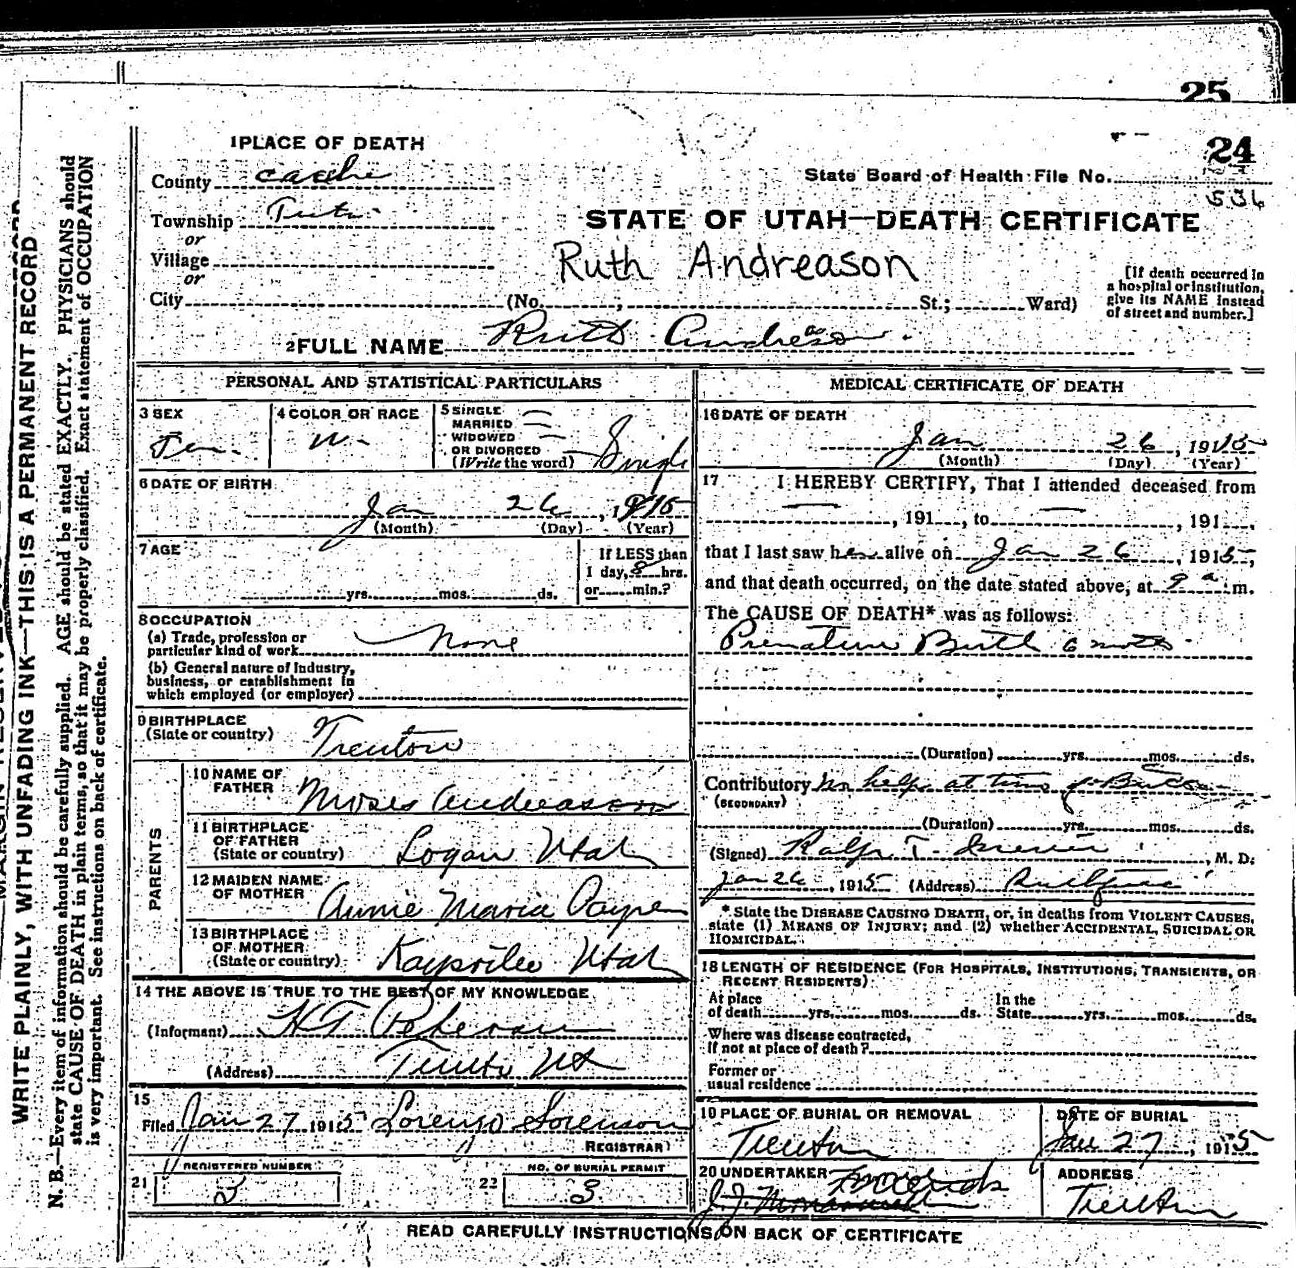 25
24
1 PLACE OF DEATH
County Cache
State Board of Health File No.
536
Township
or
STATE OF UTAH—DEATH CERTIFICATE
Village
or
Ruth Andreason
City (No. ; St.; Ward)
[If death occurred in
a hospital or institution,
give its NAME instead
of street and number.]
2 FULL NAME Ruth Andreason
PERSONAL AND STATISTICAL PARTICULARS
3 SEX
Fem.
4 COLOR OR RACE
W.
5 SINGLE
MARRIED
WIDOWED
OR DIVORCED
(Write the word) Single
6 DATE OF BIRTH
Jan 26, 1915
(Month) (Day) (Year)
7 AGE
yrs. mos. ds.
If LESS than
1 day, 8 hrs.
or min.?
8 OCCUPATION
(a) Trade, profession or
particular kind of work None
(b) General nature of Industry,
business, or establishment in
which employed (or employer)
9 BIRTHPLACE
(State or country) Trenton
PARENTS
10 NAME OF
FATHER Moses Andreason
11 BIRTHPLACE
OF FATHER
(State or country) Logan Utah
12 MAIDEN NAME
OF MOTHER Annie Maria Payne
13 BIRTHPLACE
OF MOTHER
(State or country) Kaysville Utah
14 THE ABOVE IS TRUE TO THE BEST OF MY KNOWLEDGE
(Informant) Petersen
(Address) Trenton Ut
15
Filed Jan 27 1915 Lorenzo Sorenson
REGISTRAR
REGISTERED NUMBER
21 3
NO. OF BURIAL PERMIT
22 3
MEDICAL CERTIFICATE OF DEATH
16 DATE OF DEATH
Jan 26, 1915
(Month) (Day) (Year)
17 I HEREBY CERTIFY, That I attended deceased from
, 191 , to , 191 ,
that I last saw her alive on Jan 26, 1915,
and that death occurred, on the date stated above, at 9 a m.
The CAUSE OF DEATH* was as follows:
Premature Birth 6 months
(Duration) yrs. mos. ds.
Contributory No help at time of Birth
(SECONDARY)
(Duration) yrs. mos. ds.
(Signed) Ralph T. , M. D.
Jan 26, 1915 (Address)
*State the DISEASE CAUSING DEATH, or, in deaths from VIOLENT CAUSES,
state (1) MEANS OF INJURY; and (2) whether ACCIDENTAL, SUICIDAL OR
HOMICIDAL.
18 LENGTH OF RESIDENCE (FOR HOSPITALS, INSTITUTIONS, TRANSIENTS, OR
RECENT RESIDENTS)
At place
of death yrs. mos. ds.
In the
State yrs. mos. ds.
Where was disease contracted,
If not at place of death?
Former or
usual residence
19 PLACE OF BURIAL OR REMOVAL
Trenton
DATE OF BURIAL
Jan 27, 1915
20 UNDERTAKER
ADDRESS
Trenton
READ CAREFULLY INSTRUCTIONS ON BACK OF CERTIFICATE
WRITE PLAINLY, WITH UNFADING INK—THIS IS A PERMANENT RECORD
N. B.—Every item of information should be carefully supplied. AGE should be stated EXACTLY. PHYSICIANS should
state CAUSE OF DEATH in plain terms, so that it may be properly classified. Exact statement of OCCUPATION
is very important. See instructions on back of certificate.